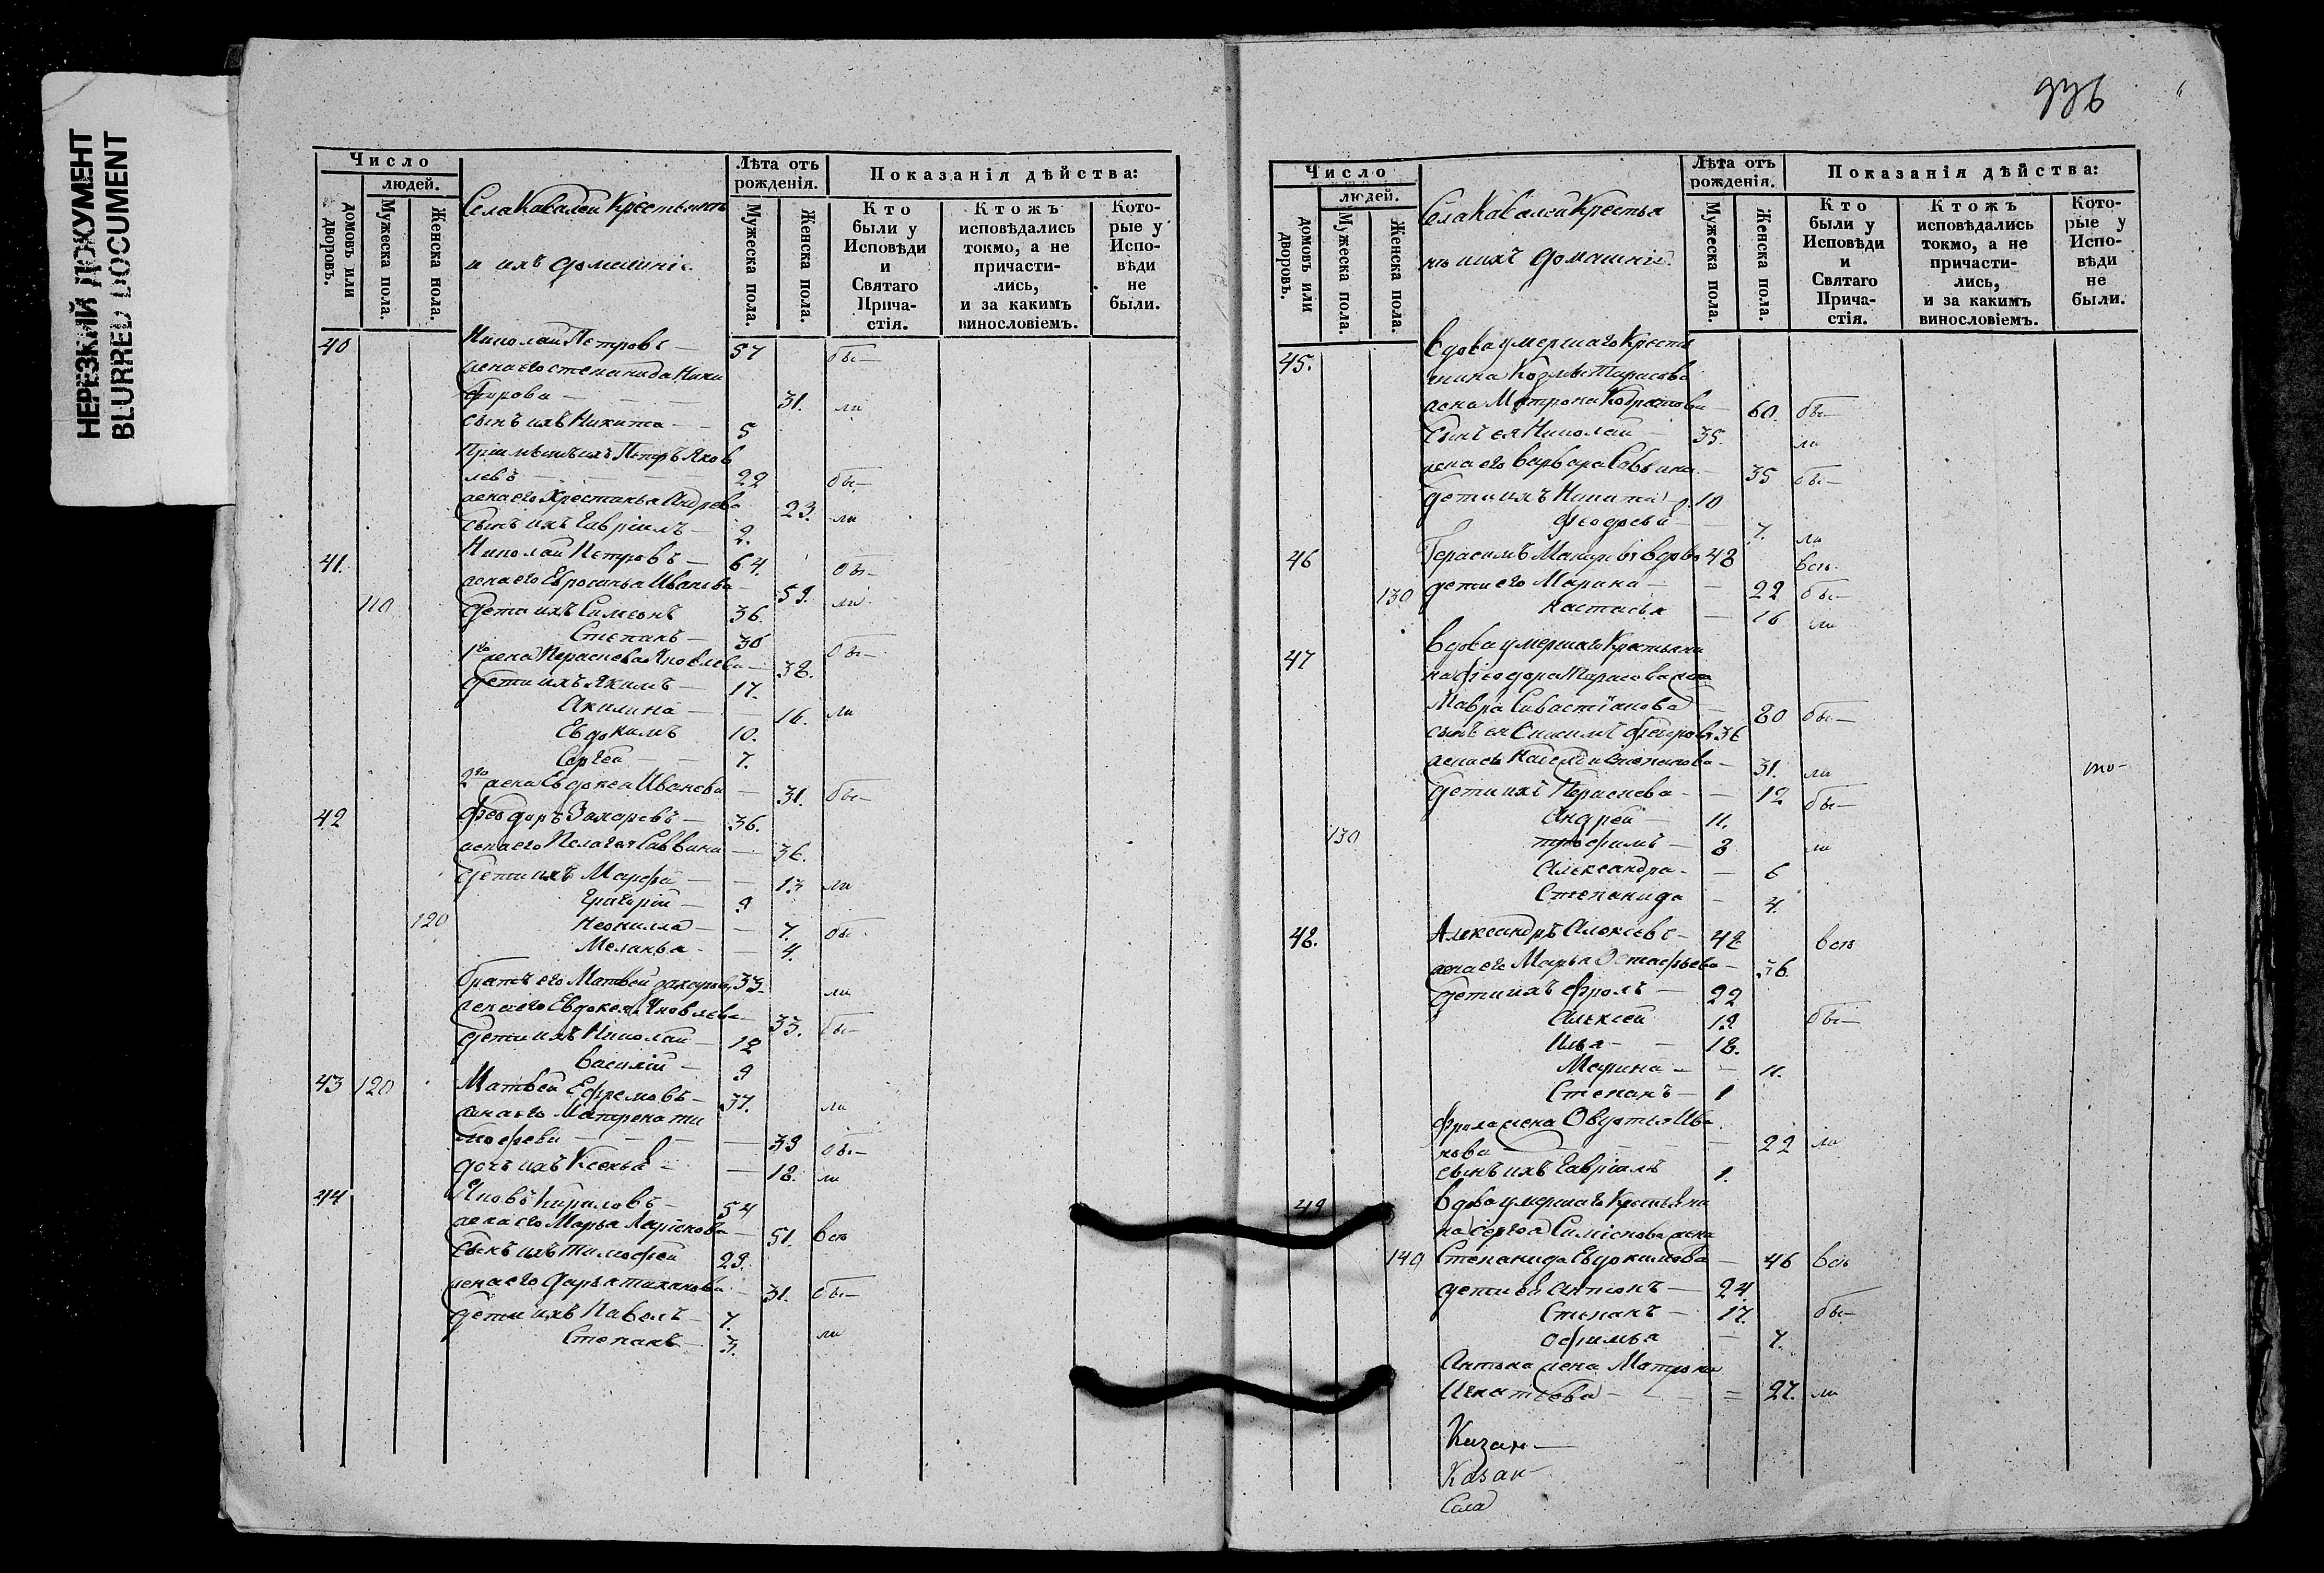 НЕРЕЗКИЙ ДОКУМЕНТ
BLURRED DOCUMENT
Число
людей.
домовъ или дворовъ.
Мужеска пола.
Женска пола.
Села Крестьяне
и ихъ домашніе.
Лѣта отъ рожденія.
Мужеска пола.
Женска пола.
Показанія дѣйства:
Кто были у Исповѣди и Святаго Прича-стія.
Ктожъ исповѣдались токмо, а не причасти-лись, и за какимъ винословіемъ.
Кото-рые у Испо-вѣди не были.
40 Николай Петровъ — 57 бы—
жена его степанида Ники
форова — 31. ли
сынъ ихъ Никита — 5
Петръ Яков
левъ — 22 бы—
жена его Хрестинья Андрева 23. ли
сынъ ихъ Гавріилъ — 2.
41. Николай Петровъ — 64. бы—
жена его Евросинья Иванова 59. ли
110 дети ихъ Симеонъ 36.
Степанъ — 30 бы—
1го жена Параскева Яковлева — 38.
дети ихъ Якимъ — 17.
Акилина — 16. ли
Евдокимъ 10.
Сергей — 7.
2го жена Евдокея Иванова — 31. бы—
42 Феодоръ Захаровъ — 36.
жена его Пелагея Саввина — 36.
дети ихъ Марфа — 13 ли
Григорій — 9
120 Неонилла — 7. бы
Меланья — 4.
братъ его Матвей Захаровъ 33. ли
жена его Евдокея Яковлева — 33. бы—
дети ихъ Николай — 12
Василій — 9
43 120 Матвей Ефремовъ — 37. ли
жена его Матрена ти
мофева — 39 бы—
дочь ихъ Ксенья — 18. ли
44 Яковъ Кириловъ — 54
жена его Марья Ларіонова — 51. вси
сынъ ихъ Тимофей 29.
жена его Дарья тиханова — 31. бы—
дети ихъ Павелъ — 7.
Степанъ — 3. ли
Число
людей.
домовъ или дворовъ.
Мужеска пола.
Женска пола.
Села Крестья
не и ихъ домашніе.
Лѣта отъ рожденія.
Мужеска пола.
Женска пола.
Показанія дѣйства:
Кто были у Исповѣди и Святаго Прича-стія.
Ктожъ исповѣдались токмо, а не причасти-лись, и за какимъ винословіемъ.
Кото-рые у Испо-вѣди не были.
45. Вдова умершаго Кресть
янина Козмы Тарасова
жена Матрона — 60. бы—
Сынъ ея Николай — 35. ли
жена его Варвара Саввина — 35 бы—
дети ихъ Никита — 10
— 7. ли
46 Герасимъ вдовъ 48 вси
130 дети его Марина — 22 бы—
Настасья — 16 ли
47 Вдова умершаго Крестьяни
на Феодора Тарасова жена
Мавра Сивастіанова — 80 бы—
сынъ ея 36
жена его — 31. ли
дети ихъ Параскева — 12 бы—
Андрей — 11.
130 трофимъ — 8 ли
Александра — 6
Степанида — 4.
48. Александръ Алексеевъ — 48 вси
жена его Марья Остафьева — 36.
дети ихъ Фролъ — 22
Алексей 19 бы—
Илья — 18.
Марина — 11.
Степанъ — 1
Фрола жена Овдотья Ива
нова — 22 ли
сынъ ихъ Гавріилъ 1.
49 Вдова умершаго Крестьяни
на Сергея Симіонова жена
140 Степанида Евдокимова — 46 вси
дети ей Антонъ — 24.
Степанъ — 17. бы—
Офимья — 7.
Антона жена Матрона
Игнатьева — 27. ли
Казан—
Казан
Села